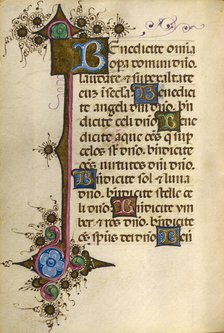 Benedicite omnia
opera domini dno.
laudate & superexaltate
eum i secula. Benedicite
angeli dni dno. bn
dicite celi dno. Benedicite
dicite aque oēs q sup
celos st dno. bndicite
oēs uirtutes dni dno.
Bndicite sol & luna
dno. bndicite stelle ce
li dno. Bndicite ym
ber & ros dno. bndicite
oēs sp̄us dei dno. Beni